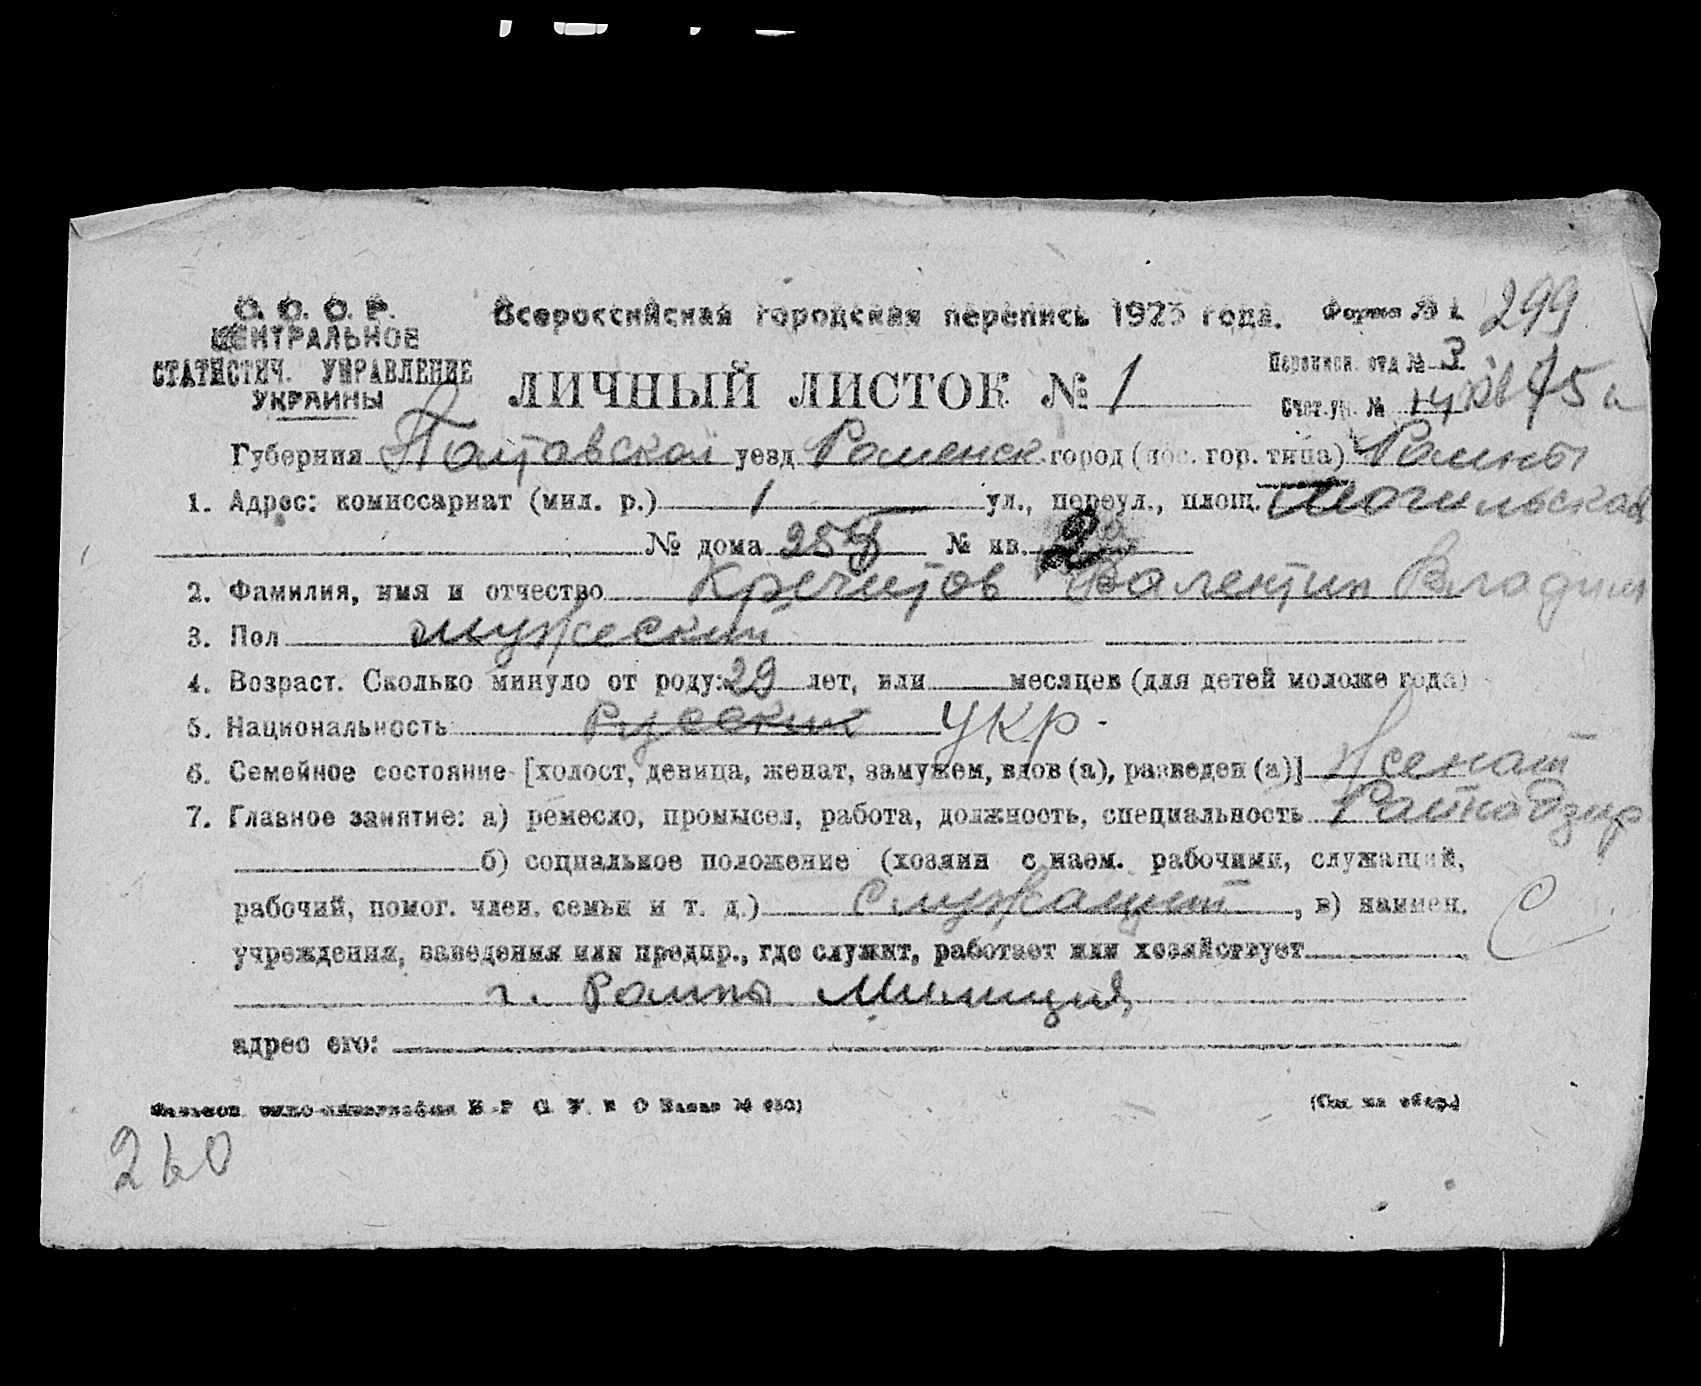 С. С. С. Р.
ЦЕНТРАЛЬНОЕ
СТАТИСТИЧ. УПРАВЛЕНИЕ
УКРАИНЫ
Всероссийская городская перепись 1923 года.
Форма № 1.
299
ЛИЧНЫЙ ЛИСТОК № 1
Переписн. отд № 3
Счет. уч. № 14
Губерния Полтавской уезд Роменск город (пос. гор. типа) Ромны
1. Адрес: комиссариат (мил. р.) 1 ул., переул., площ.
№ дома 25 № кв. 2
2. Фамилия, имя и отчество Кречетов Валентин Владим
3. Пол мужеский
4. Возраст. Сколько минуло от роду: 29 лет, или месяцев (для детей моложе года)
5. Национальность Русский Укр.
6. Семейное состояние [холост, девица, женат, замужем, вдов (а), разведен (а)] Женат
7. Главное занятие: а) ремесло, промысел, работа, должность, специальность Райнадзир
б) социальное положение (хозяин с наем. рабочими, служащий,
рабочий, помог. член. семьи и т. д.) Служащий, в) наимен.
С
учреждения, заведения или предпр., где служит, работает или хозяйствует
г. Ромны Милиция
адрес его:
(См. на обор.)
260